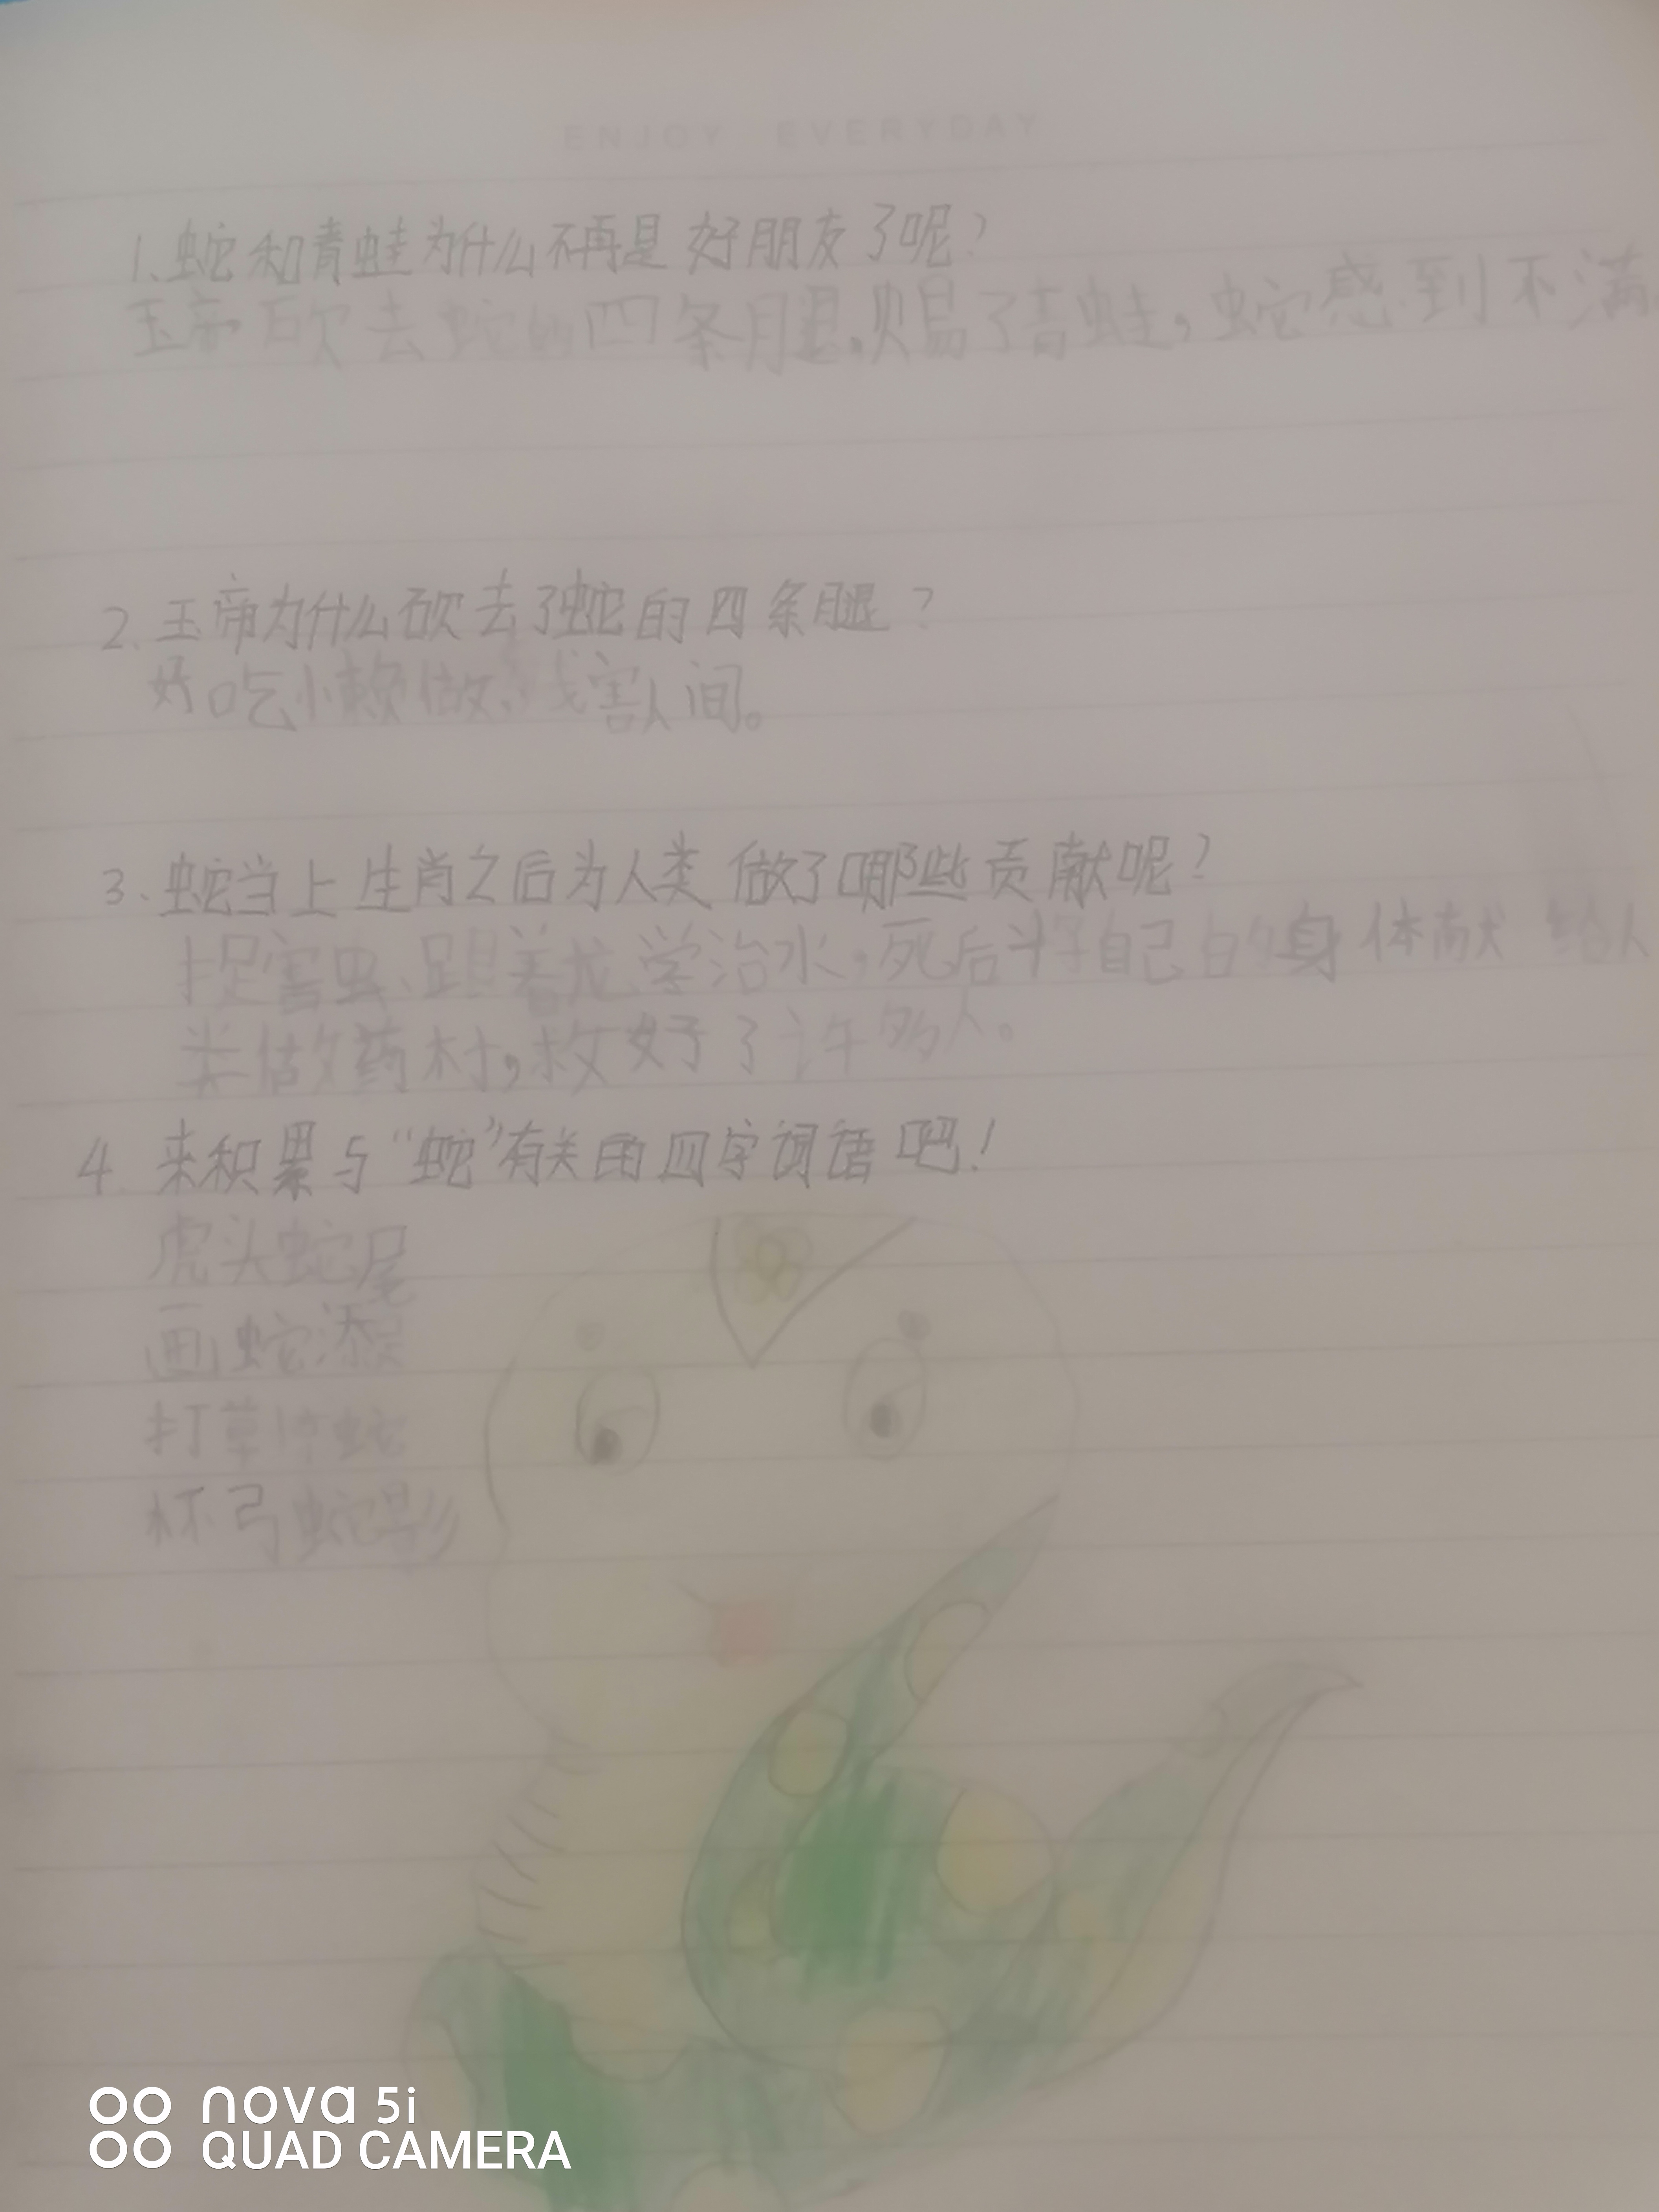 ENJOY EVERYDAY
1、蛇和青蛙为什么不再是好朋友了呢?
玉帝砍去蛇的四条腿,赐了青蛙,蛇感到不满
2、玉帝为什么砍去了蛇的四条腿?
好吃小懒做,残害人间。
3、蛇当上生肖之后为人类做了哪些贡献呢?
捉害虫、跟着龙学治水,死后将自己的身体献给人
类做药材,救好了许多人。
4、来积累与“蛇”有关的四字词语吧!
虎头蛇尾
画蛇添足
打草惊蛇
杯弓蛇影
nova 5i
QUAD CAMERA